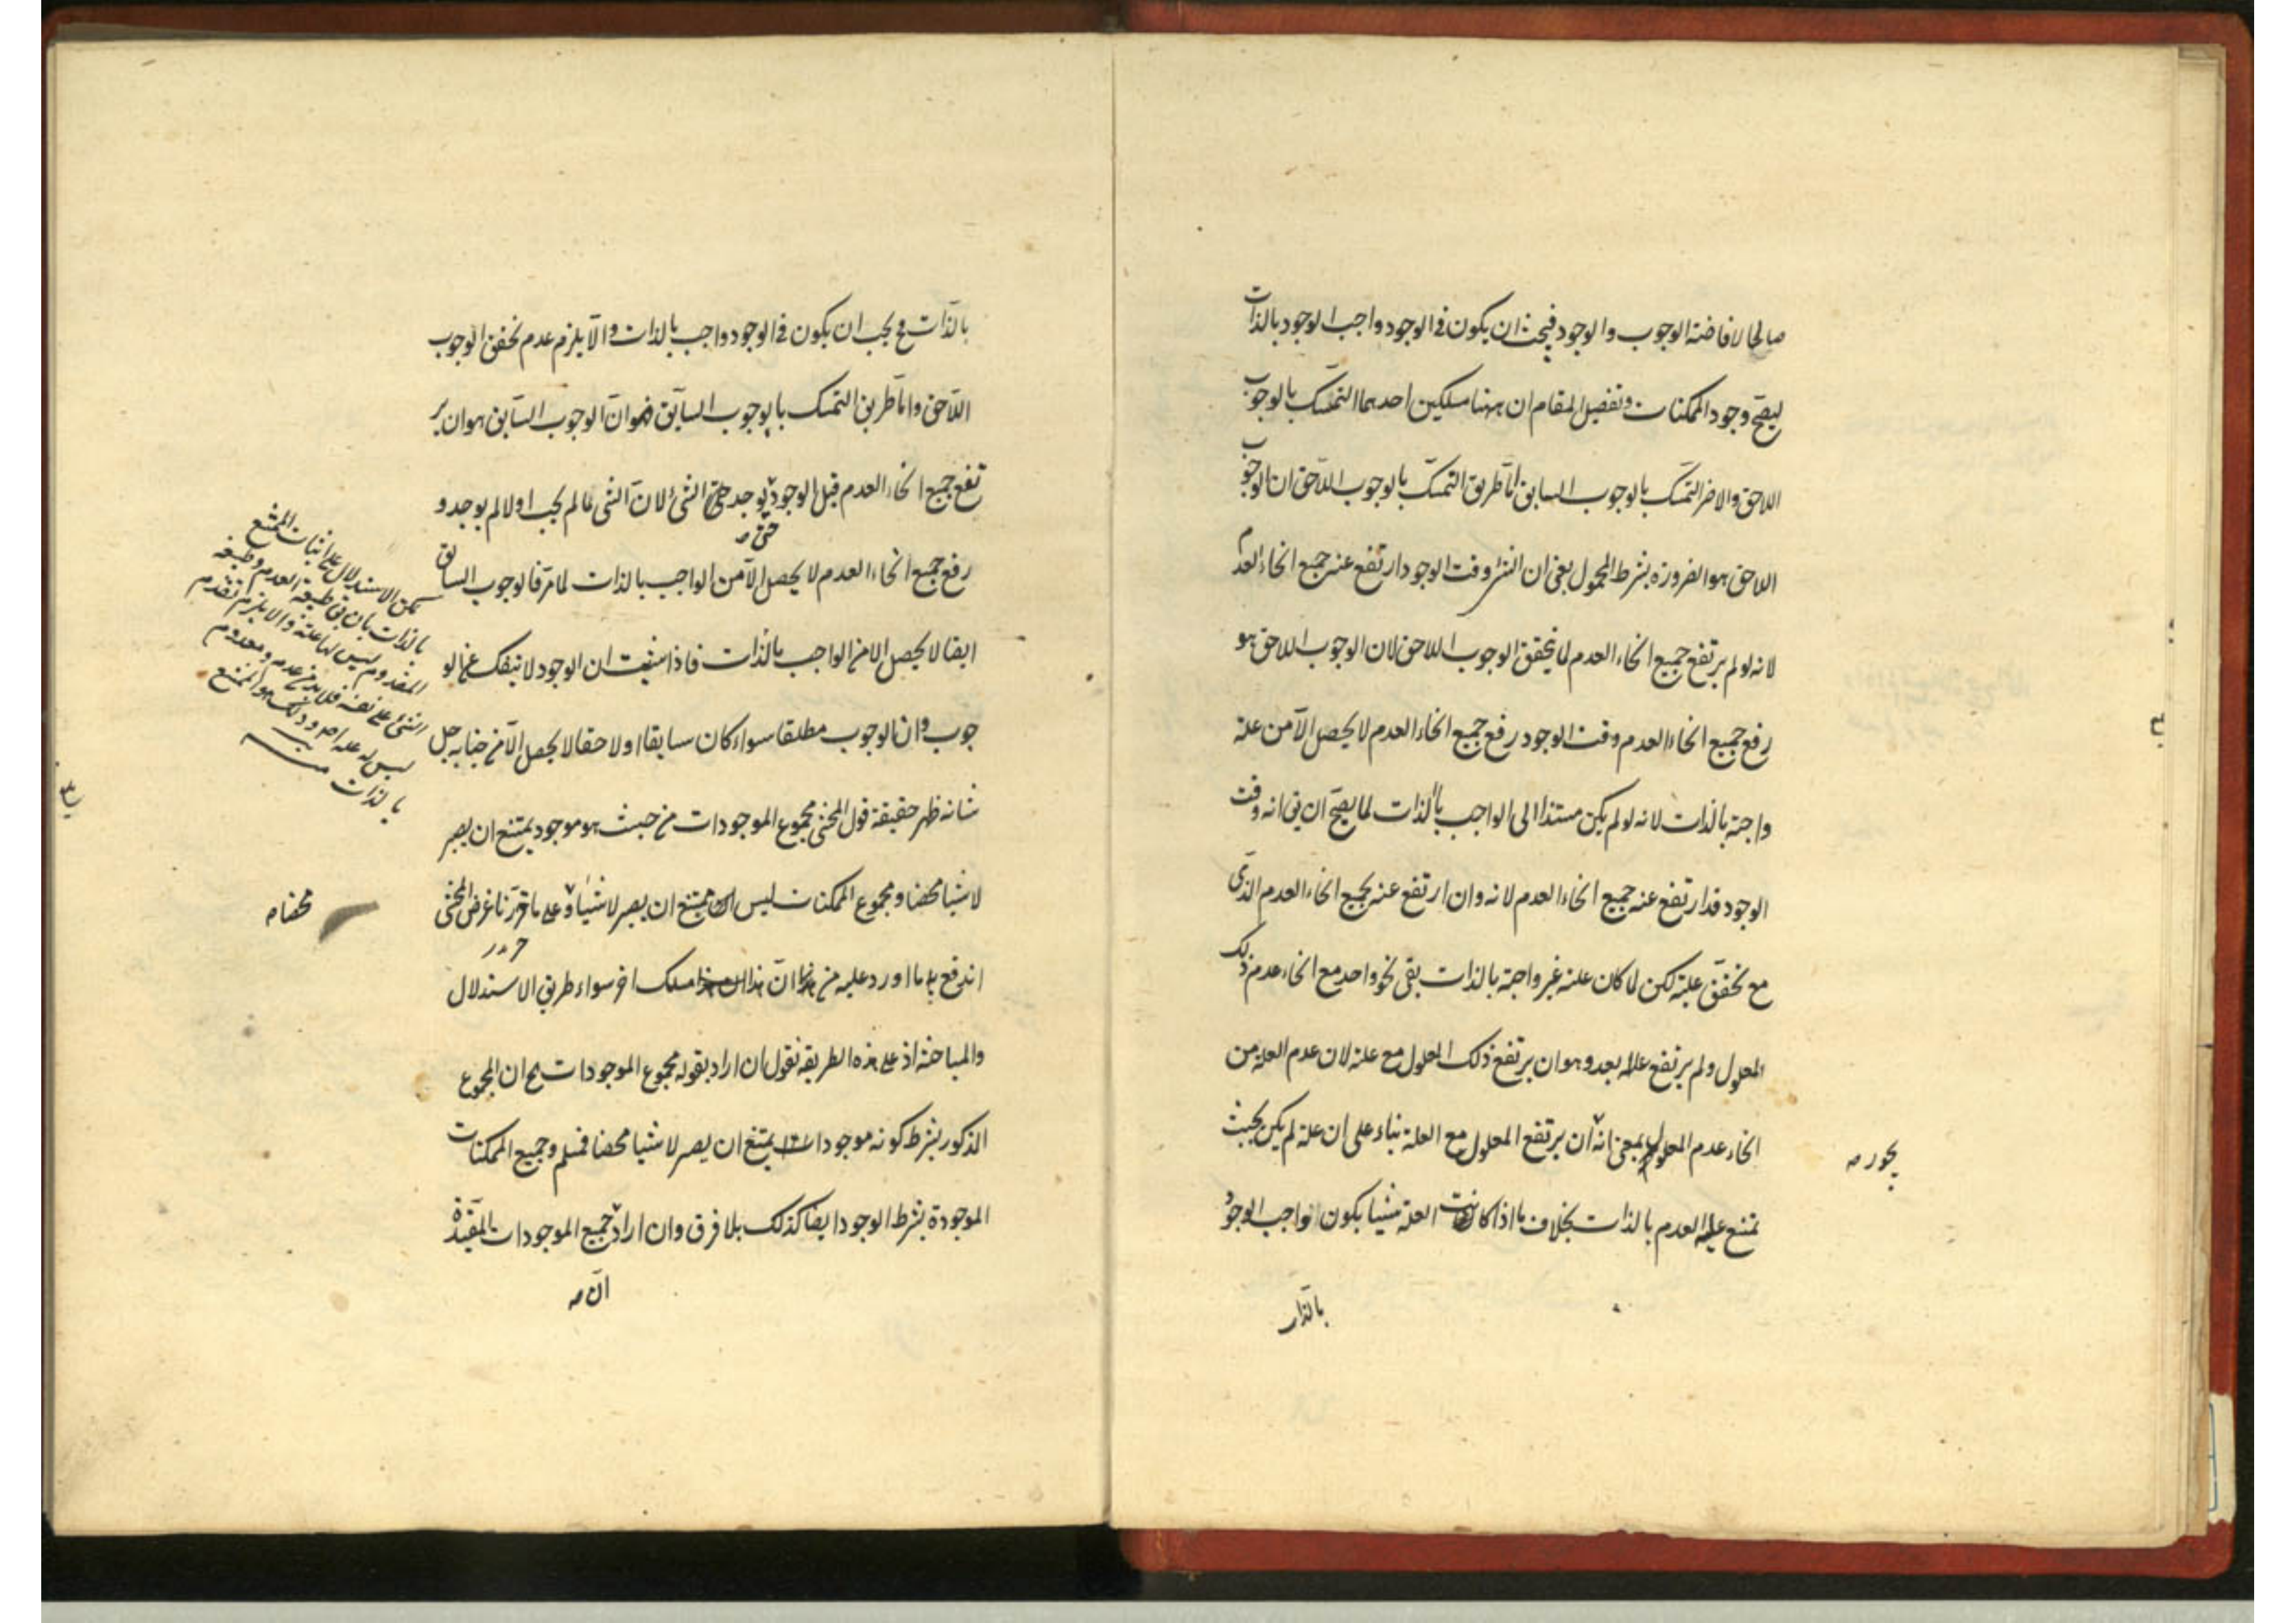 صالحا لافاضة الوجوب والوجود فيجب ان يكون في الوجود واجب الوجود بالذات
ليصح وجود الممكنات وتفصيل المقام ان ههنا مسلكين احدهما التمسك بالوجوب
اللاحق والاخر التمسك بالوجوب السابق اما طريق التمسك بالوجوب اللاحق ان الوجوب
اللاحق هو الضرورة بشرط المحمول يعني ان الشئ وقت الوجود ارتفع عنه جميع انحاء العدم
لانه لو لم يرتفع جميع انحاء العدم لما يتحقق الوجوب اللاحق لان الوجوب اللاحق هو
رفع جميع انحاء العدم وقت الوجود رفع جميع انحاء العدم لا يحصل الا من علة
واجبة بالذات لانه لو لم يكن مستندا الى الواجب بالذات لما يصح ان يق انه وقت
الوجود قد ارتفع عنه جميع انحاء العدم لانه وان ارتفع عنه جميع انحاء العدم الذي
مع تحقق علته لكن لما كان علته غير واجبة بالذات بقي نحو واحد مع انحاء عدم ذلك
المعلول ولم يرتفع بعد وهو ان يرتفع ذلك المعلول مع علته لان عدم العلة من
انحاء عدم المعلول بمعنى انه ان يرتفع المعلول مع العلة بناء على ان علته لم يكن بحيث
يجوز صه
يمتنع عليه العدم بالذات بخلاف ما اذا كانت العلة شيئا يكون الواجب الوجود
بالذات
بالذات فح يجب ان يكون في الوجود واجب بالذات والا يلزم عدم تحقق الوجوب
اللاحق واما طريق التمسك بالوجوب السابق فهو ان الوجوب السابق هو ان ير
تفع جميع انحاء العدم قبل الوجود يوجد الشئ لان الشئ ما لم يجب اولا لم يوجد و
حتى صه
رفع جميع انحاء العدم لا يحصل الا من الواجب بالذات لما مر فالوجوب السابق
ايضا لا يحصل الا من الواجب بالذات فاذا ان الوجود لا ينفك عن الو
جوب وان الوجوب مطلقا سواء كان سابقا او لاحقا لا يحصل الا من جنابه جل
شانه ظهر حقيقة قول المحشي مجموع الموجودات من حيث هو موجود يمتنع ان يصير
لا شيئا محضا ومجموع الممكنات ليس يمتنع ان يصير لا شيئا وعلى ما قررنا غرض المحشي
محضا صه
اندفع ما اورد عليه من ان هذا مسلك اخر سواء طريق الاستدلال
والمباحثة اذ على هذه الطريقة نقول ان اراد بقوله مجموع الموجودات يح ان المجموع
المذكور بشرط كونه موجودا يمتنع ان يصير لا شيئا محضا فمسلم وجميع الممكنات
الموجودة بشرط الوجود ايضا كذلك بلا فرق وان اراد جميع الموجودات المقيدة
ان صه
يمكن الاستدلال على اثبات الممتنع
بالذات بان يق طبيعة العدم وطبيعة
المعدوم ليس لها علة والا يلزم تقدم
الشئ على نفسه فلا بد من عدم ومعدوم
ليس له علة اصلا وذلك هو الممتنع
بالذات منه